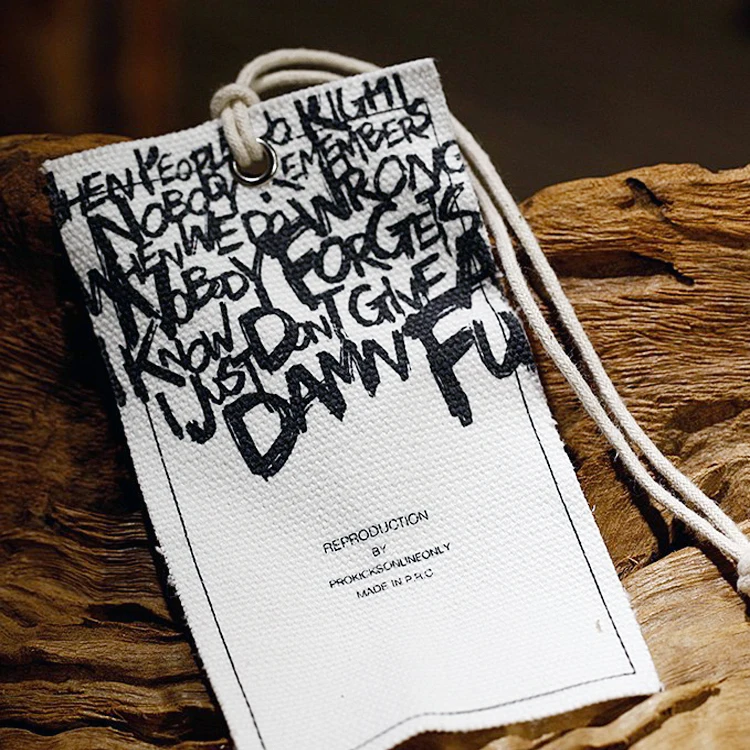 WHEN PEOPLE DO RIGHT
NOBODY REMEMBERS
WHEN WE DO WRONG
NOBODY FORGETS
KNOW
I JUST DONT GIVE A
DAMN FU
REPRODUCTION
BY
PROKICKSONLINEONLY
MADE IN P.R.C